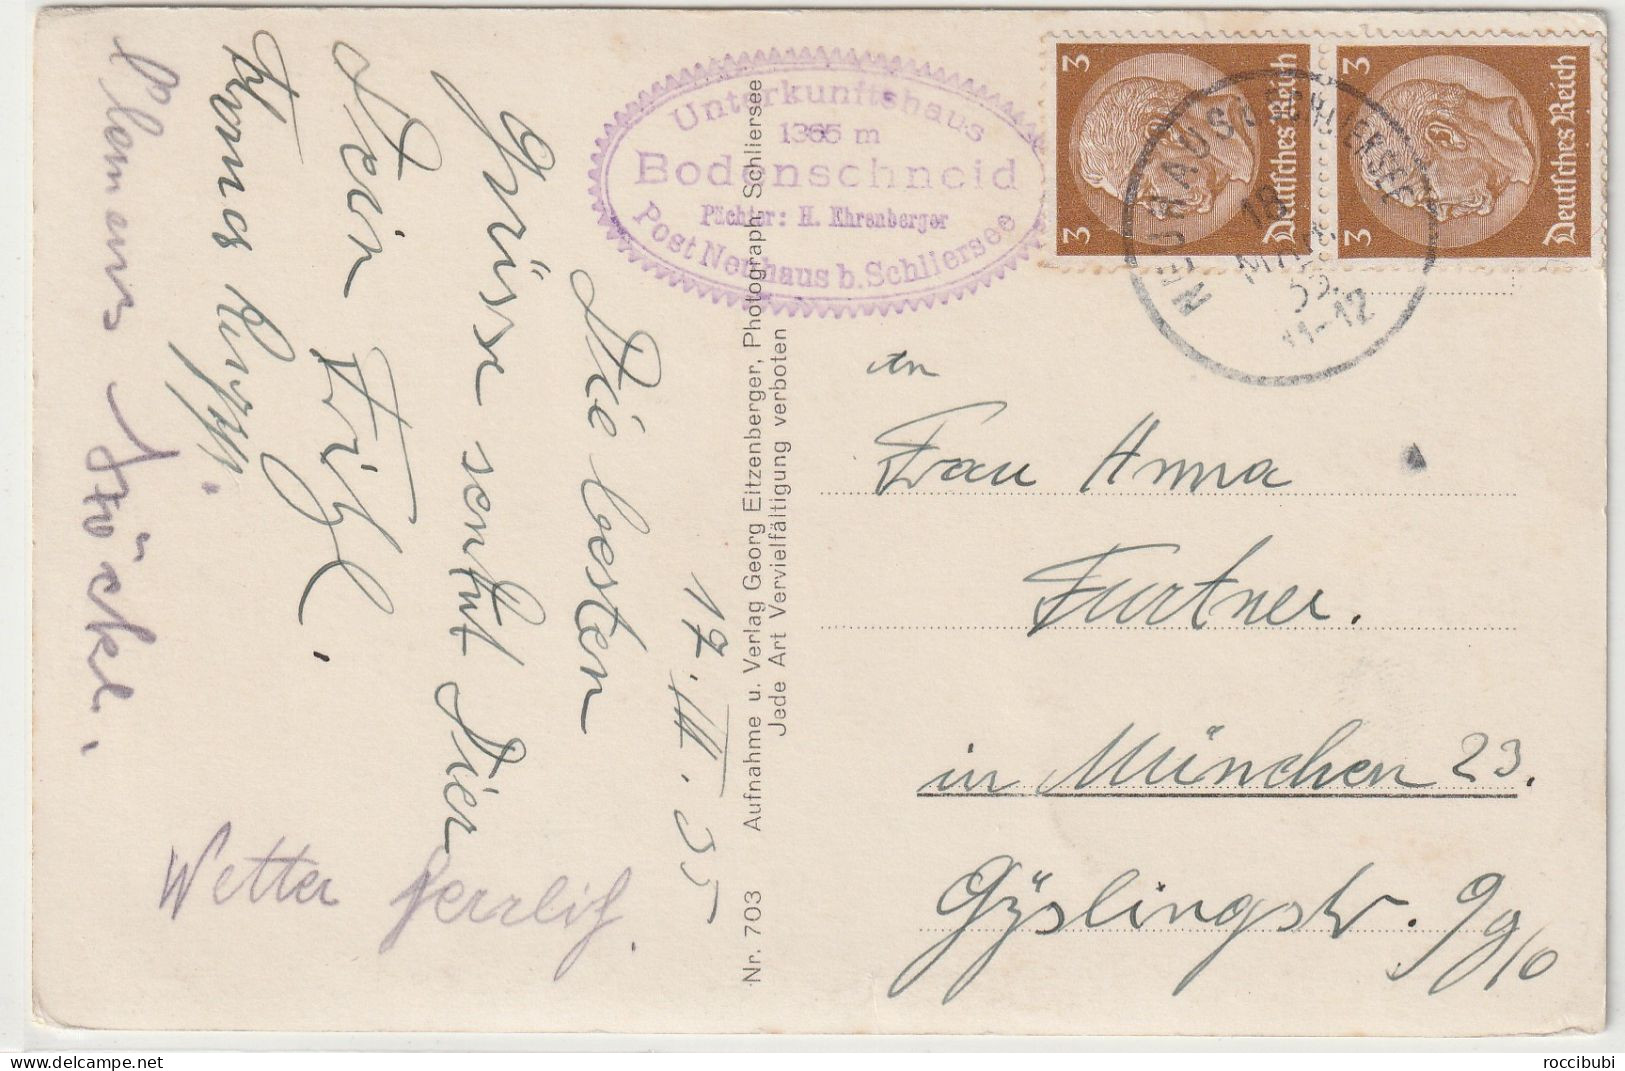 17. III. 35
Die besten
Grüsse sendet Dier
Dein Fritzl.
Hannes Rupp.
Clemens Stöckl.
Wetter herrlich.
Unterkunftshaus
1365 m
Bodenschneid
Pächter: H. Ehrenberger
Post Neuhaus b. Schliersee
Nr. 703 Aufnahme u. Verlag Georg Eitzenberger, Photograph, Schliersee
Jede Art Vervielfältigung verboten
3 3 Deutsches Reich
3 3 Deutsches Reich
NEUHAUS (SCHLIERSEE)
18
MRZ
35
11-12
An
Frau Anna
Furtner.
in München 23.
Gyslingstr.
roccibubi